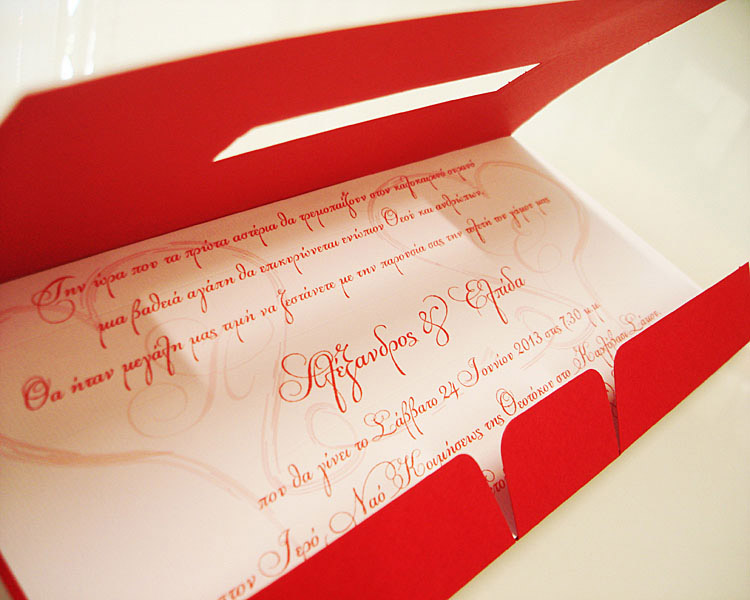 Την ώρα που τα πρώτα αστέρια θα τρεμοπαίζουν στον καλοκαιρινό ουρανό
μια βαθειά αγάπη θα επικυρώνεται ενώπιον Θεού και ανθρώπων.
Θα ήταν μεγάλη μας τιμή να ζεστάνετε με την παρουσία σας την τελετή του γάμου μας
Αλέξανδρος & Ελπίδα
που θα γίνει το Σάββατο 24 Ιουνίου 2013 στις 7:30 μ.μ.
στον Ιερό Ναό Κοιμήσεως της Θεοτόκου στο Καρλόβασι Σάμου.